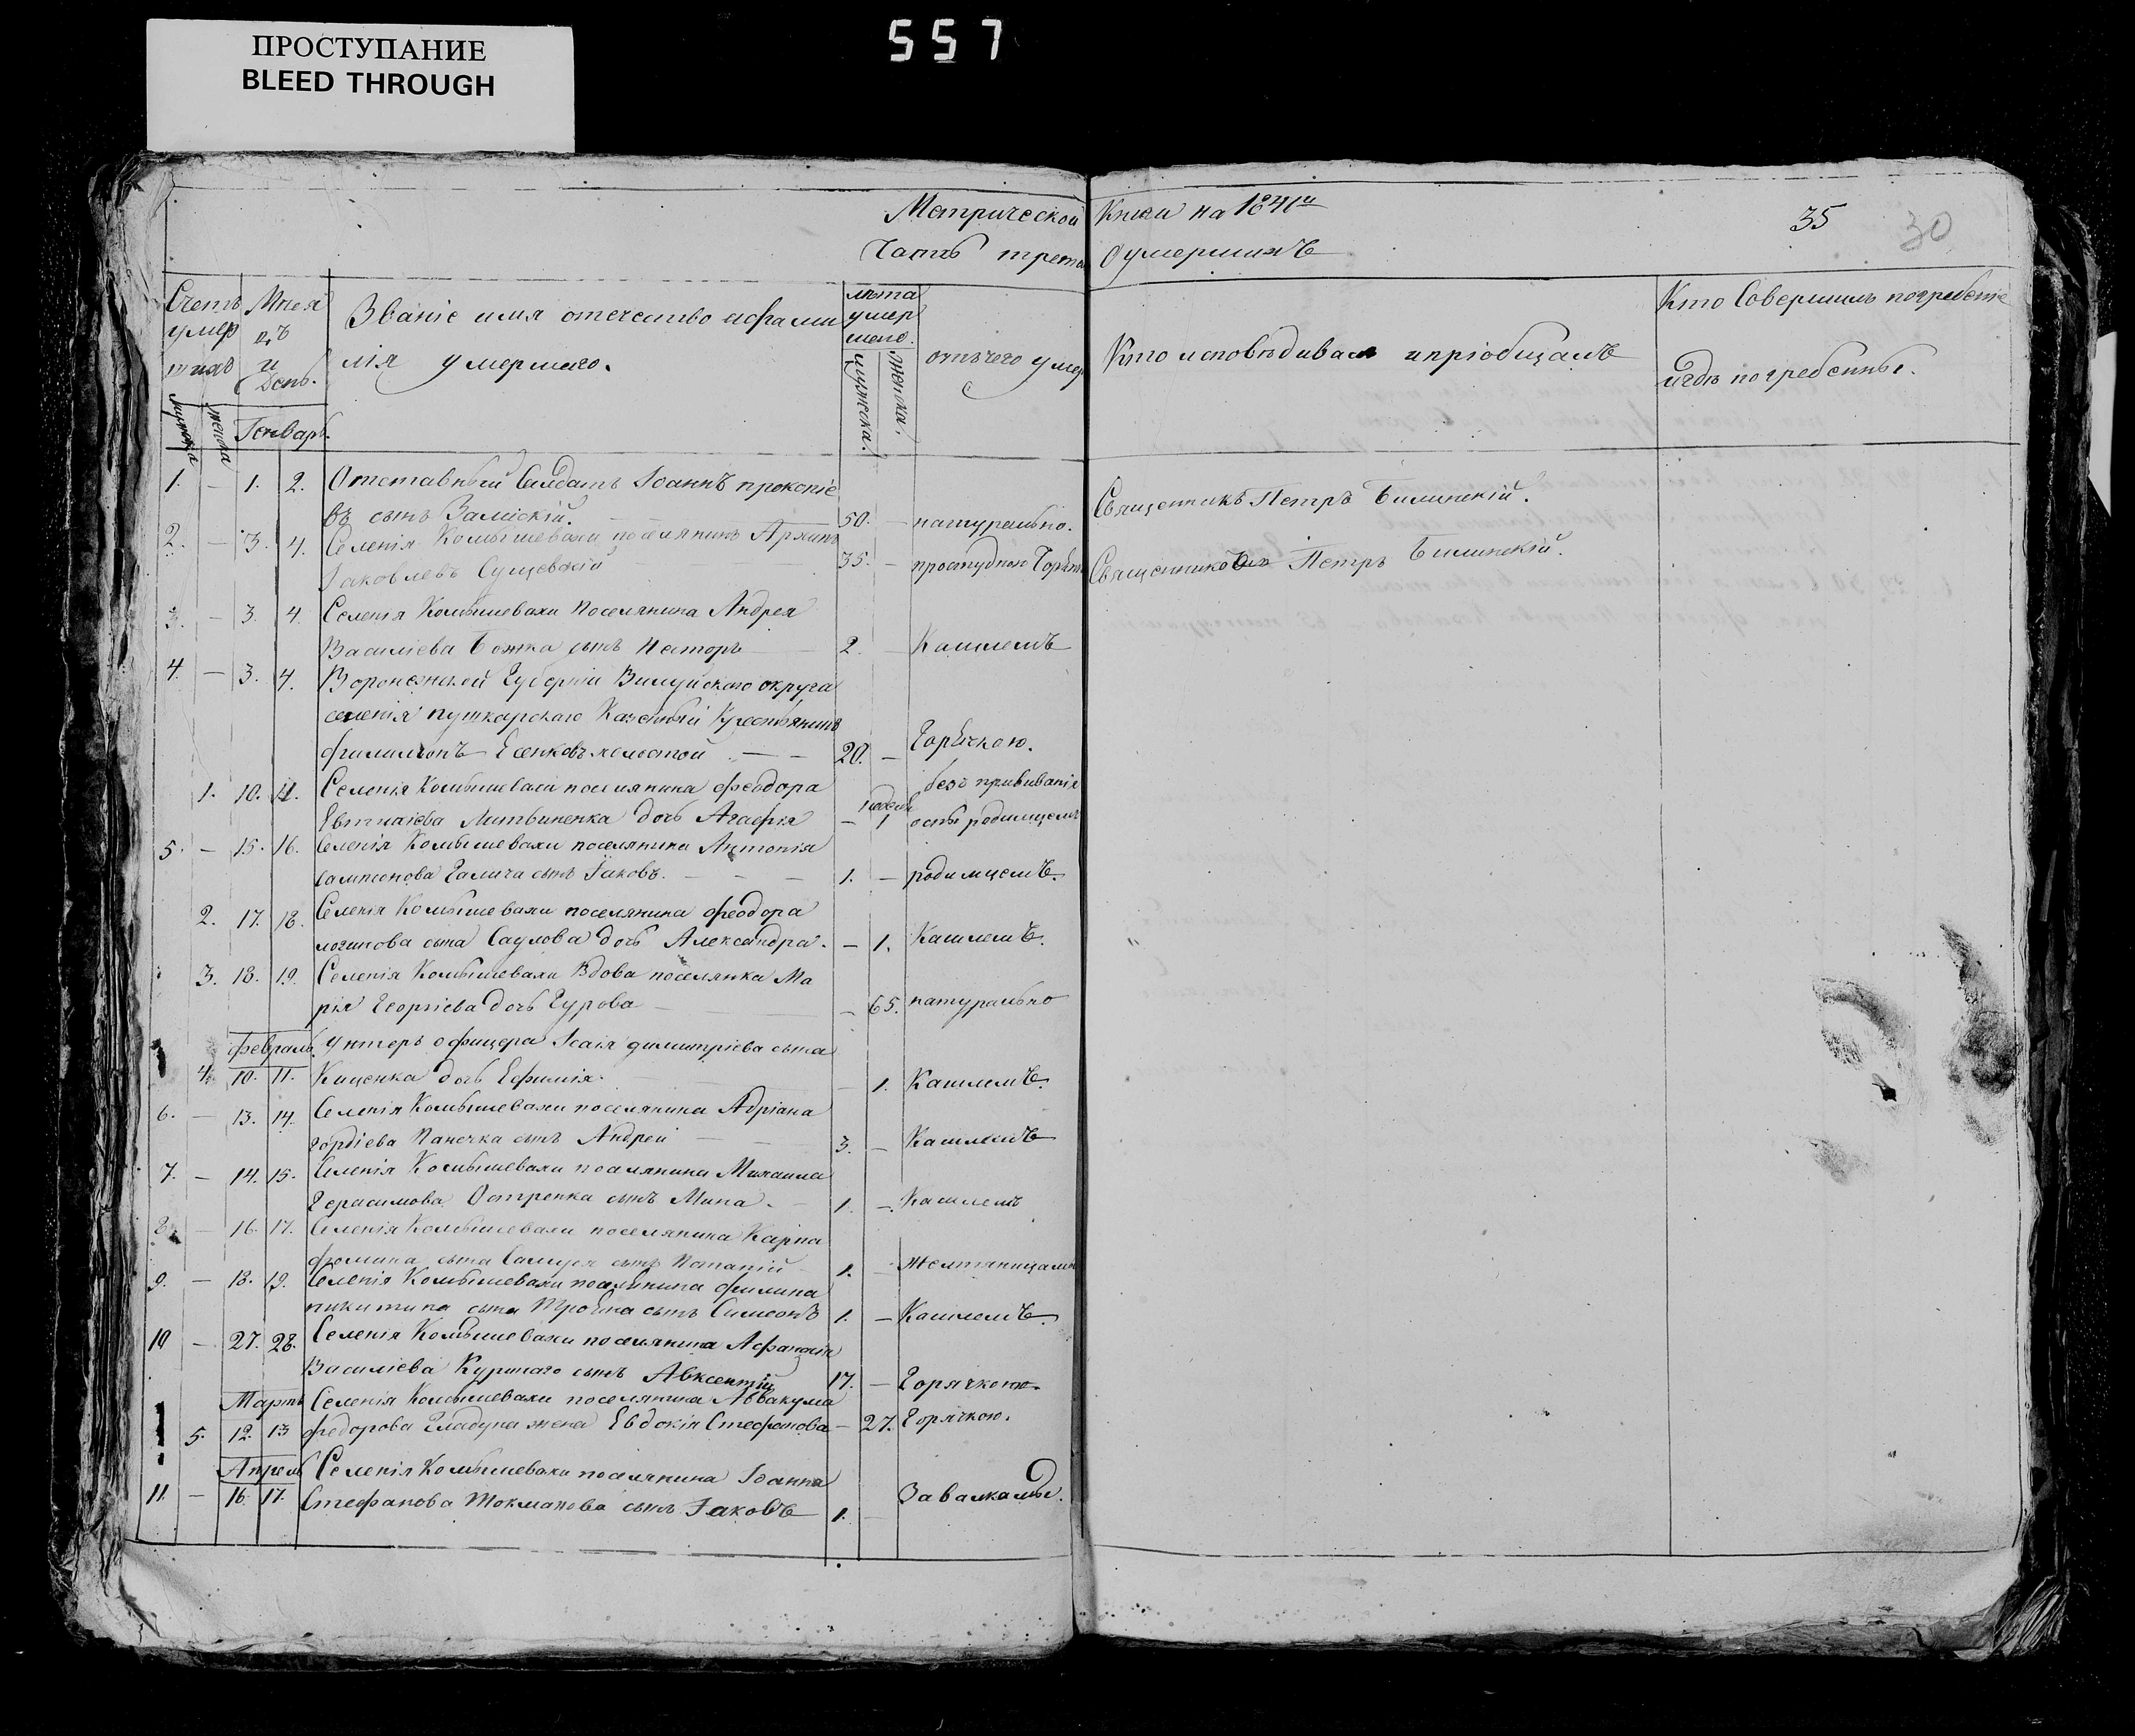 ПРОСТУПАНИЕ
BLEED THROUGH
557
Метрической Книги на 1841й
35
30
Часть трета О умершихъ
Счетъ умер шихъ
мужеска
женска
Мѣсяцъ и День.
Генварь.
Званіе имя отечество и фами
лія умершаго.
лѣта умер шаго.
мужеска.
женска.
отъ чего умер
Кто исповѣдивал и пріобщалъ
Кто Совершилъ погребеніе
и гдѣ погребенны.
1. — 1. 2. Отставный Салдатъ Іоаннъ прокопіе
въ сынъ 50. — натурально. Священникъ Петръ Билинскій.
2. — 3. 4. Селенія Комышевахи поселянинъ Архипъ
Іаковлевъ Сущевскій 35. — простудною Священников Петръ Билинскій.
3. — 3. 4. Селенія Комышевахи поселянина Андрея
Василіева Божка сынъ Несторъ 2. — Кашлемъ
4. — 3. 4. Воронежской Губерніи Вилуйскаго округа
селенія пушкарскаго Казенный Крестьянинъ
филимонъ Есенковъ холостой — — 20. — Горячкою.
1. 10. 11. Селенія Комышевахи поселянина феодора без прививанія
Литвиненка дочь Агафія — 1 недели оспы родимцемъ
5. — 15. 16. Селенія Комышевахи поселянина Антонія
Сампсонова Галича сынъ Іаковъ. — — — 1. — родимцемъ.
2. 17. 18. Селенія Комышевахи поселянина феодора
логинова сына Саулова дочь Александра. — 1. Кашлемъ.
3. 18. 19. Селенія Комышевахи Вдова поселянка Ма
рія Георгіева дочь Гурова — — 65. натурально
февраль. Унтеръ офицера Исаія димитріева сына
4. 10. 11. Кищенка дочь Ефимія. — 1. Кашлемъ.
6. — 13. 14. Селенія Комышевахи поселянина Адріана
гордіева Паночка сынъ Андрей — — 3. — Кашлемъ
7. — 14. 15. Селенія Комышевахи поселянина Михаила
Герасимова Остренка сынъ Мина. — 1. — Кашлемъ
8. — 16. 17. Селенія Комышевахи поселянина Карпа
фомина сына сынъ Потапій 1. —
9. — 18. 19. Селенія Комышевахи поселянина филипа
никитина сына сынъ Симеонъ 1. — Кашлемъ.
10 — 27. 28. Селенія Комышевахи поселянина Афанасія
Василіева Курпаго сынъ Авксентій 17. — Горячкою.
Мартъ Селенія Комышевахи поселянина Аввакума
5. 12. 13 федорова Гладуна жена Евдокія Стефанова — 27. Горячкою.
Апрель Селенія Комышевахи поселянина Іоанна
11. — 16. 17. Стефанова Токманова сынъ Іаковъ 1. — Завалками.